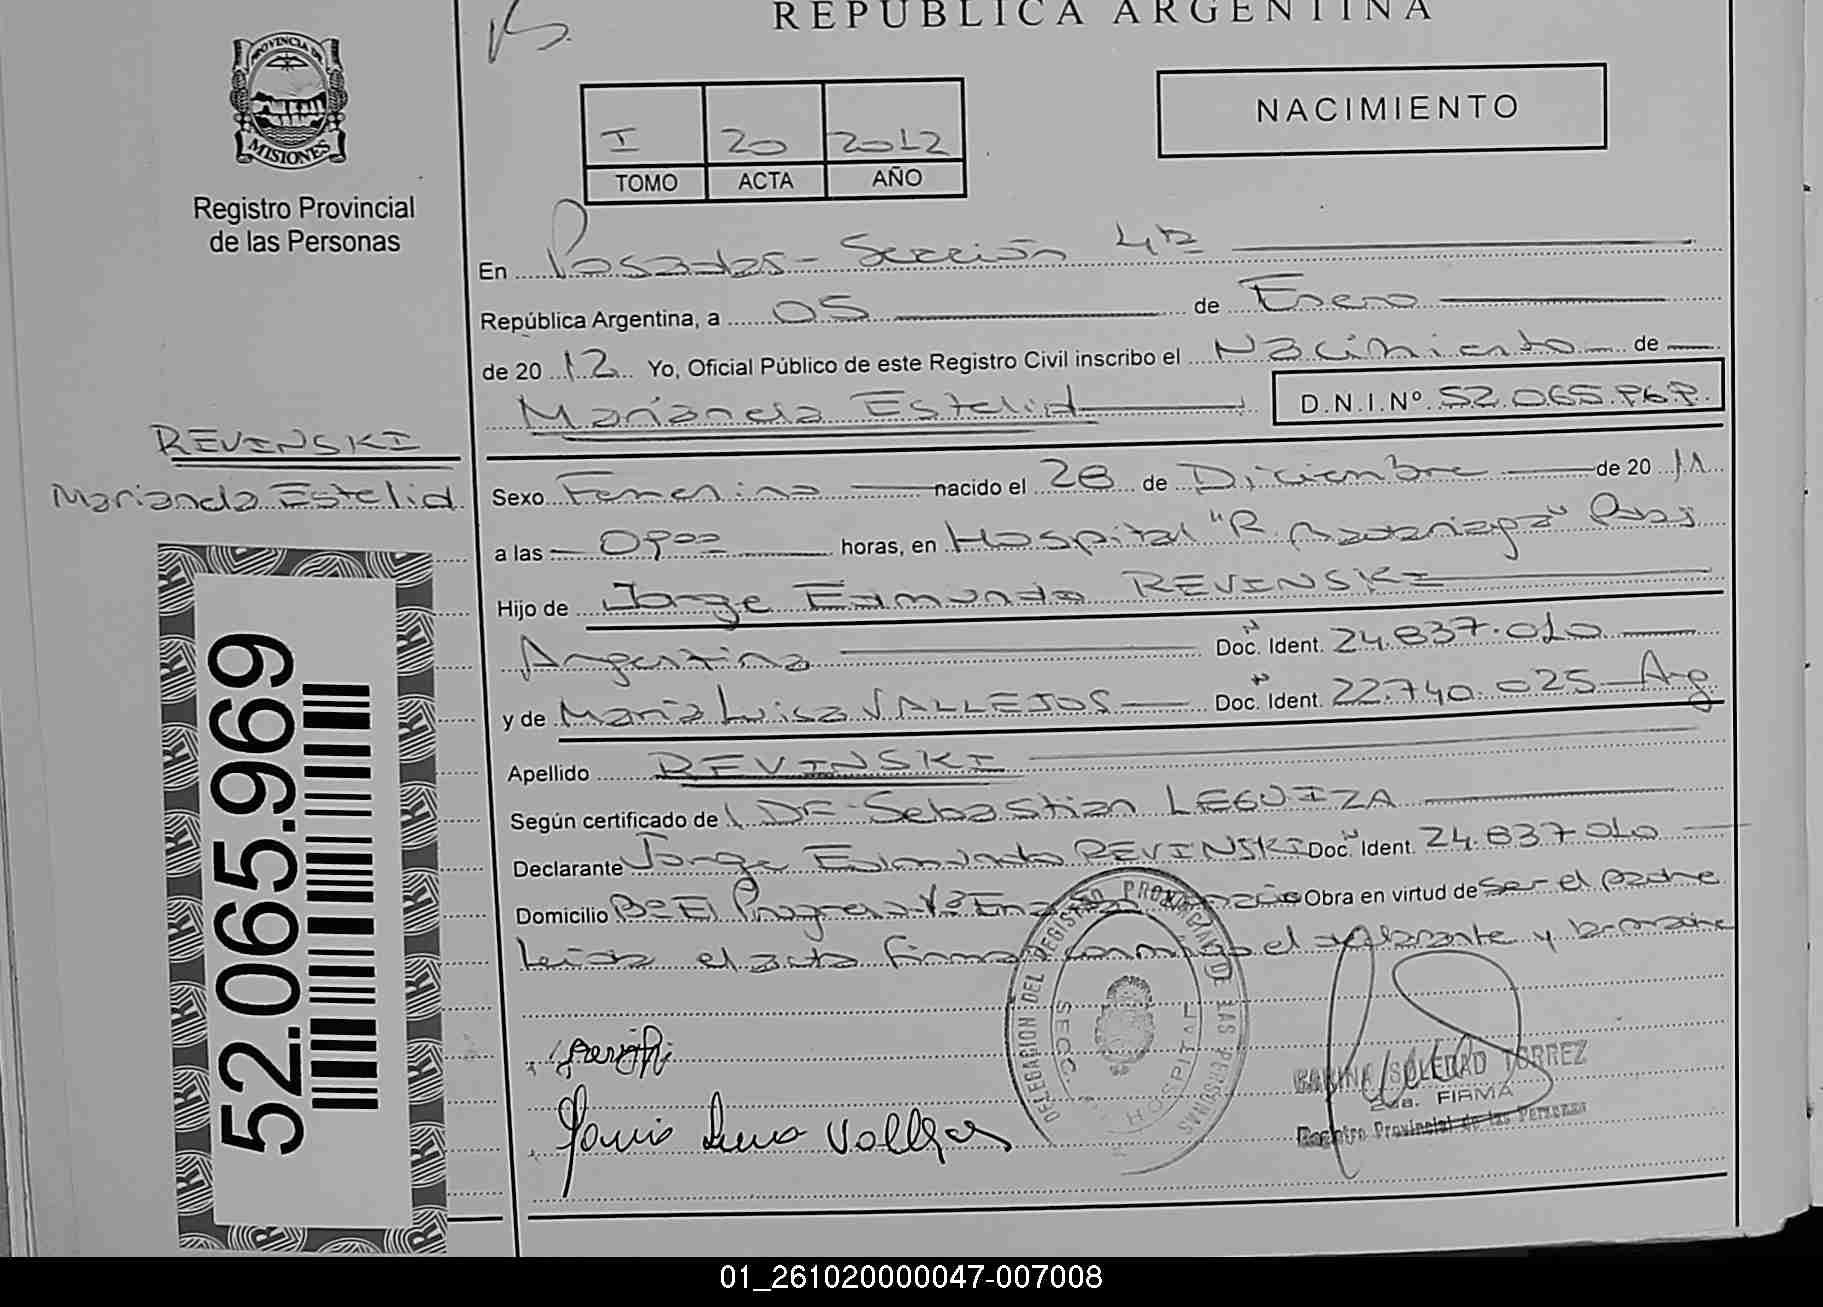 REPUBLICA ARGENTINA
PROVINCIA DE
MISIONES
Registro Provincial
de las Personas
NACIMIENTO
I 20 2012
TOMO ACTA AÑO
En Posadas - Sección 4ta
República Argentina, a 05 de Enero
de 20 12 Yo, Oficial Público de este Registro Civil inscribo el Nacimiento de
Marianela Estelid D.N.I.Nº 52.065.969
REVINSKI
Marianela Estelid
Sexo Femenino nacido el 28 de Diciembre de 20 11
a las 09ºº horas, en Hospital "R. Madariaga" Pdas
Hijo de Jorge Edmundo REVINSKI
Argentina Doc. Ident. 24.837.010
y de María Luisa VALLEJOS Doc. Ident. 22.740.025 Arg
Apellido REVINSKI
Según certificado de Sebastian LEGUIZA
Declarante Jorge Edmundo REVINSKI Doc. Ident. 24.837.010
Domicilio Bº El Progreso Obra en virtud de Ser el padre
Leida el acta firma conmigo el declarante y la madre
52.065.969
DELEGACION DEL REGISTRO PROVINCIAL DE LAS PERSONAS
SECC. HOSPITAL
Maria Luisa Vallejos
CARINA SOLEDAD TORREZ
2da. FIRMA
Registro Provincial de las Personas
01_261020000047-007008